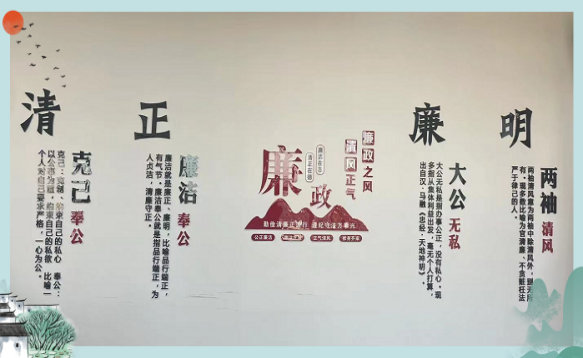 清
克己奉公
克己：克制、约束自己的私心 奉公：
以公事为重，约束自己的私欲 比喻一
个人对自己要求严格，一心为公。
正
廉洁奉公
廉洁就是廉正、廉明，比喻品行端正，
有气节 廉洁奉公就是指品行端正，为
人贞洁，清廉守正。
廉政
廉政之风
清风正气
廉
大公无私
大公无私是指办事公正，没有私心。现
多指从集体利益出发，毫无个人打算，
出自汉·马融《忠经·天地神明》
明
两袖清风
两袖清风意为两袖中除清风外，
有，现多数比喻为官清廉、不贪赃枉法
严于律己的人。